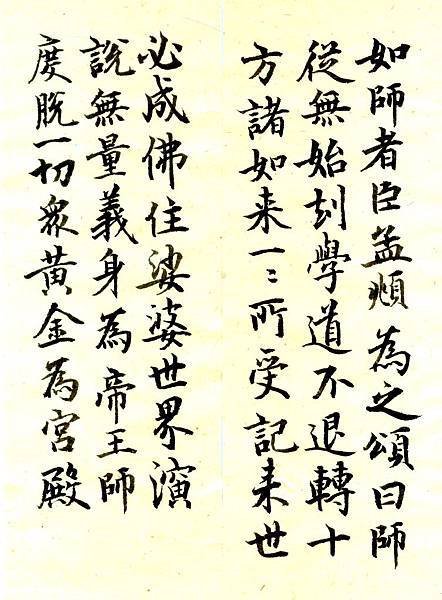 如師者臣孟頫為之頌曰師
從無始刼學道不退轉十
方諸如来一〻所受記来世
必成佛住娑婆世界演
說無量義身為帝王師
度脫一切眾黃金為宮殿